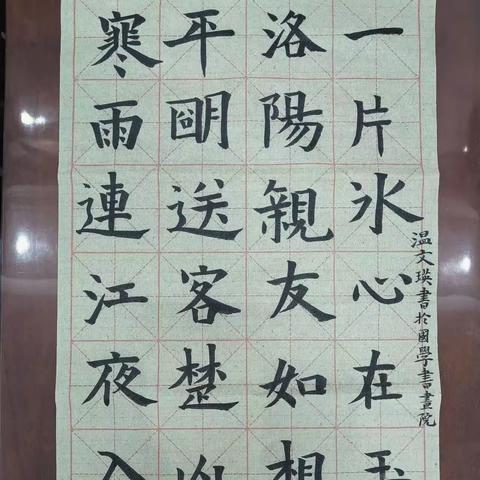 寒雨連江夜入
平朙送客楚山
洛陽親友如相
一片氷心在玉
温文瑛書扵國學書畫院